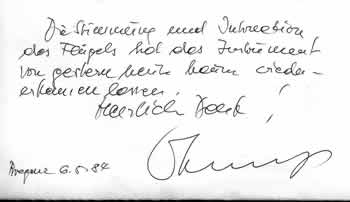 Die Stimmung und Intonation
des Flügels hat das Instrument
von gestern heute kaum wieder-
erkennen lassen!
Herzlich Dank!
Bregenz 6.5.84